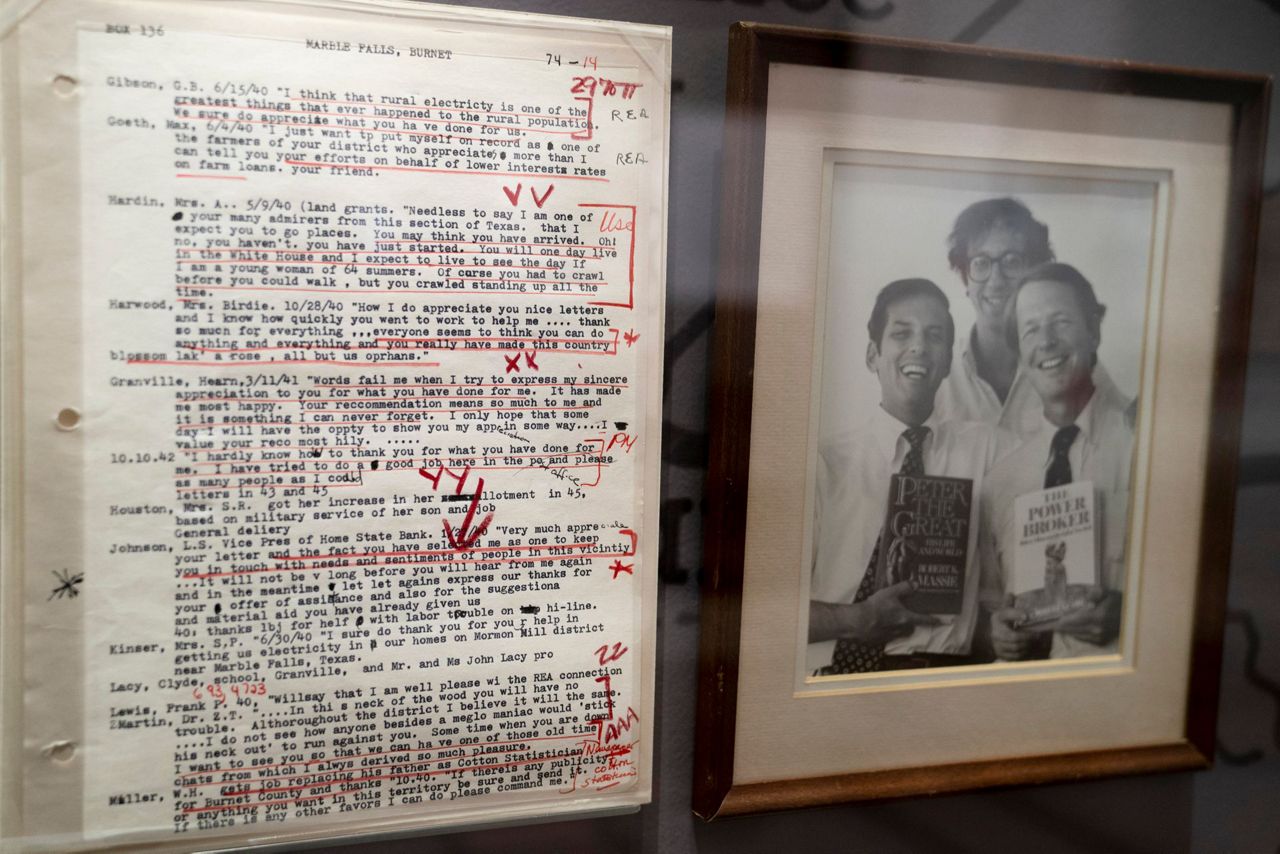 BOX 136
MARBLE FALLS, BURNET
74-14
29 70 TT
Gibson, G.B. 6/15/40 "I think that rural electricty is one of the
greatest things that ever happened to the rural population.
We sure do appreciate what you ha ve done for us.
REA
Goeth, Max, 6/4/40 "I just want tp put myself on record as one of
the farmers of your district who appreciate, more than I
can tell you your efforts on behalf of lower interests rates
on farm loans. your friend.
REA
Hardin, Mrs. A.. 5/9/40 (land grants. "Needless to say I am one of
your many admirers from this section of Texas. that I
expect you to go places. You may think you have arrived. Oh!
no, you haven't. you have just started. You will one day live
in the White House and I expect to live to see the day If
I am a young woman of 64 summers. Of curse you had to crawl
before you could walk , but you crawled standing up all the
time.
Use
Harwood, Mrs. Birdie. 10/28/40 "How I do appreciate you nice letters
and I know how quickly you went to work to help me .... thank
so much for everything ,,,everyone seems to think you can do
anything and everything and you really have made this country
blossom lak' a rose , all but us oprhans."
Granville, Hearn,3/11/41 "Words fail me when I try to express my sincere
appreciation to you for what you have done for me. It has made
me most happy. Your reccommendation means so much to me and
it is something I can never forget. I only hope that some
day I will have the oppty to show you my appre in some way....I
value your reco most hily. .....
10.10.42 "I hardly know how to thank you for what you have done for
me. I have tried to do a good job here in the po and please
as many people as I could
office
PM
letters in 43 and 45
Houston, Mrs. S.R. got her increase in her allotment in 45,
based on military service of her son and job
General deliery
Johnson, L.S. Vice Pres of Home State Bank. "Very much appreciate
your letter and the fact you have selected me as one to keep
you in touch with needs and sentiments of people in this vicintiy
...It will not be v long before you will hear from me again
and in the meantime let let agains express our thanks for
your offer of assitance and also for the suggestiona
and material aid you have already given us
40; thanks lbj for helf with labor trouble on hi-line.
Kinser, Mrs. S,P. "6/30/40 "I sure do thank you for you r help in
getting us electricity in our homes on Mormon Mill district
near Marble Falls, Texas.
Lacy, Clyde, school, Granville, and Mr. and Ms John Lacy pro
22
Lewis, Frank P. 40, "Willsay that I am well please wi the REA connection
2Martin, Dr. Z.T. ....In thi s neck of the wood you will have no
trouble. Althoroughout the district I believe it will the same.
....I do not see how anyone besides a meglo maniac would 'stick
his neck out' to run against you. Some time when you are down
I want to see you so that we can ha ve one of those old time
chats from which I alwys derived so much pleasure.
AAA
Miller, W.H. gets job replacing his father as Cotton Statistician
for Burnet County and thanks "10.40. "If thereis any publicity
or anything you want in this territory be sure and send it.
If there is any other favors I can do please command me.
cotton
PETER
THE
GREAT
HIS LIFE
AND WORLD
ROBERT K.
MASSIE
THE
POWER
BROKER